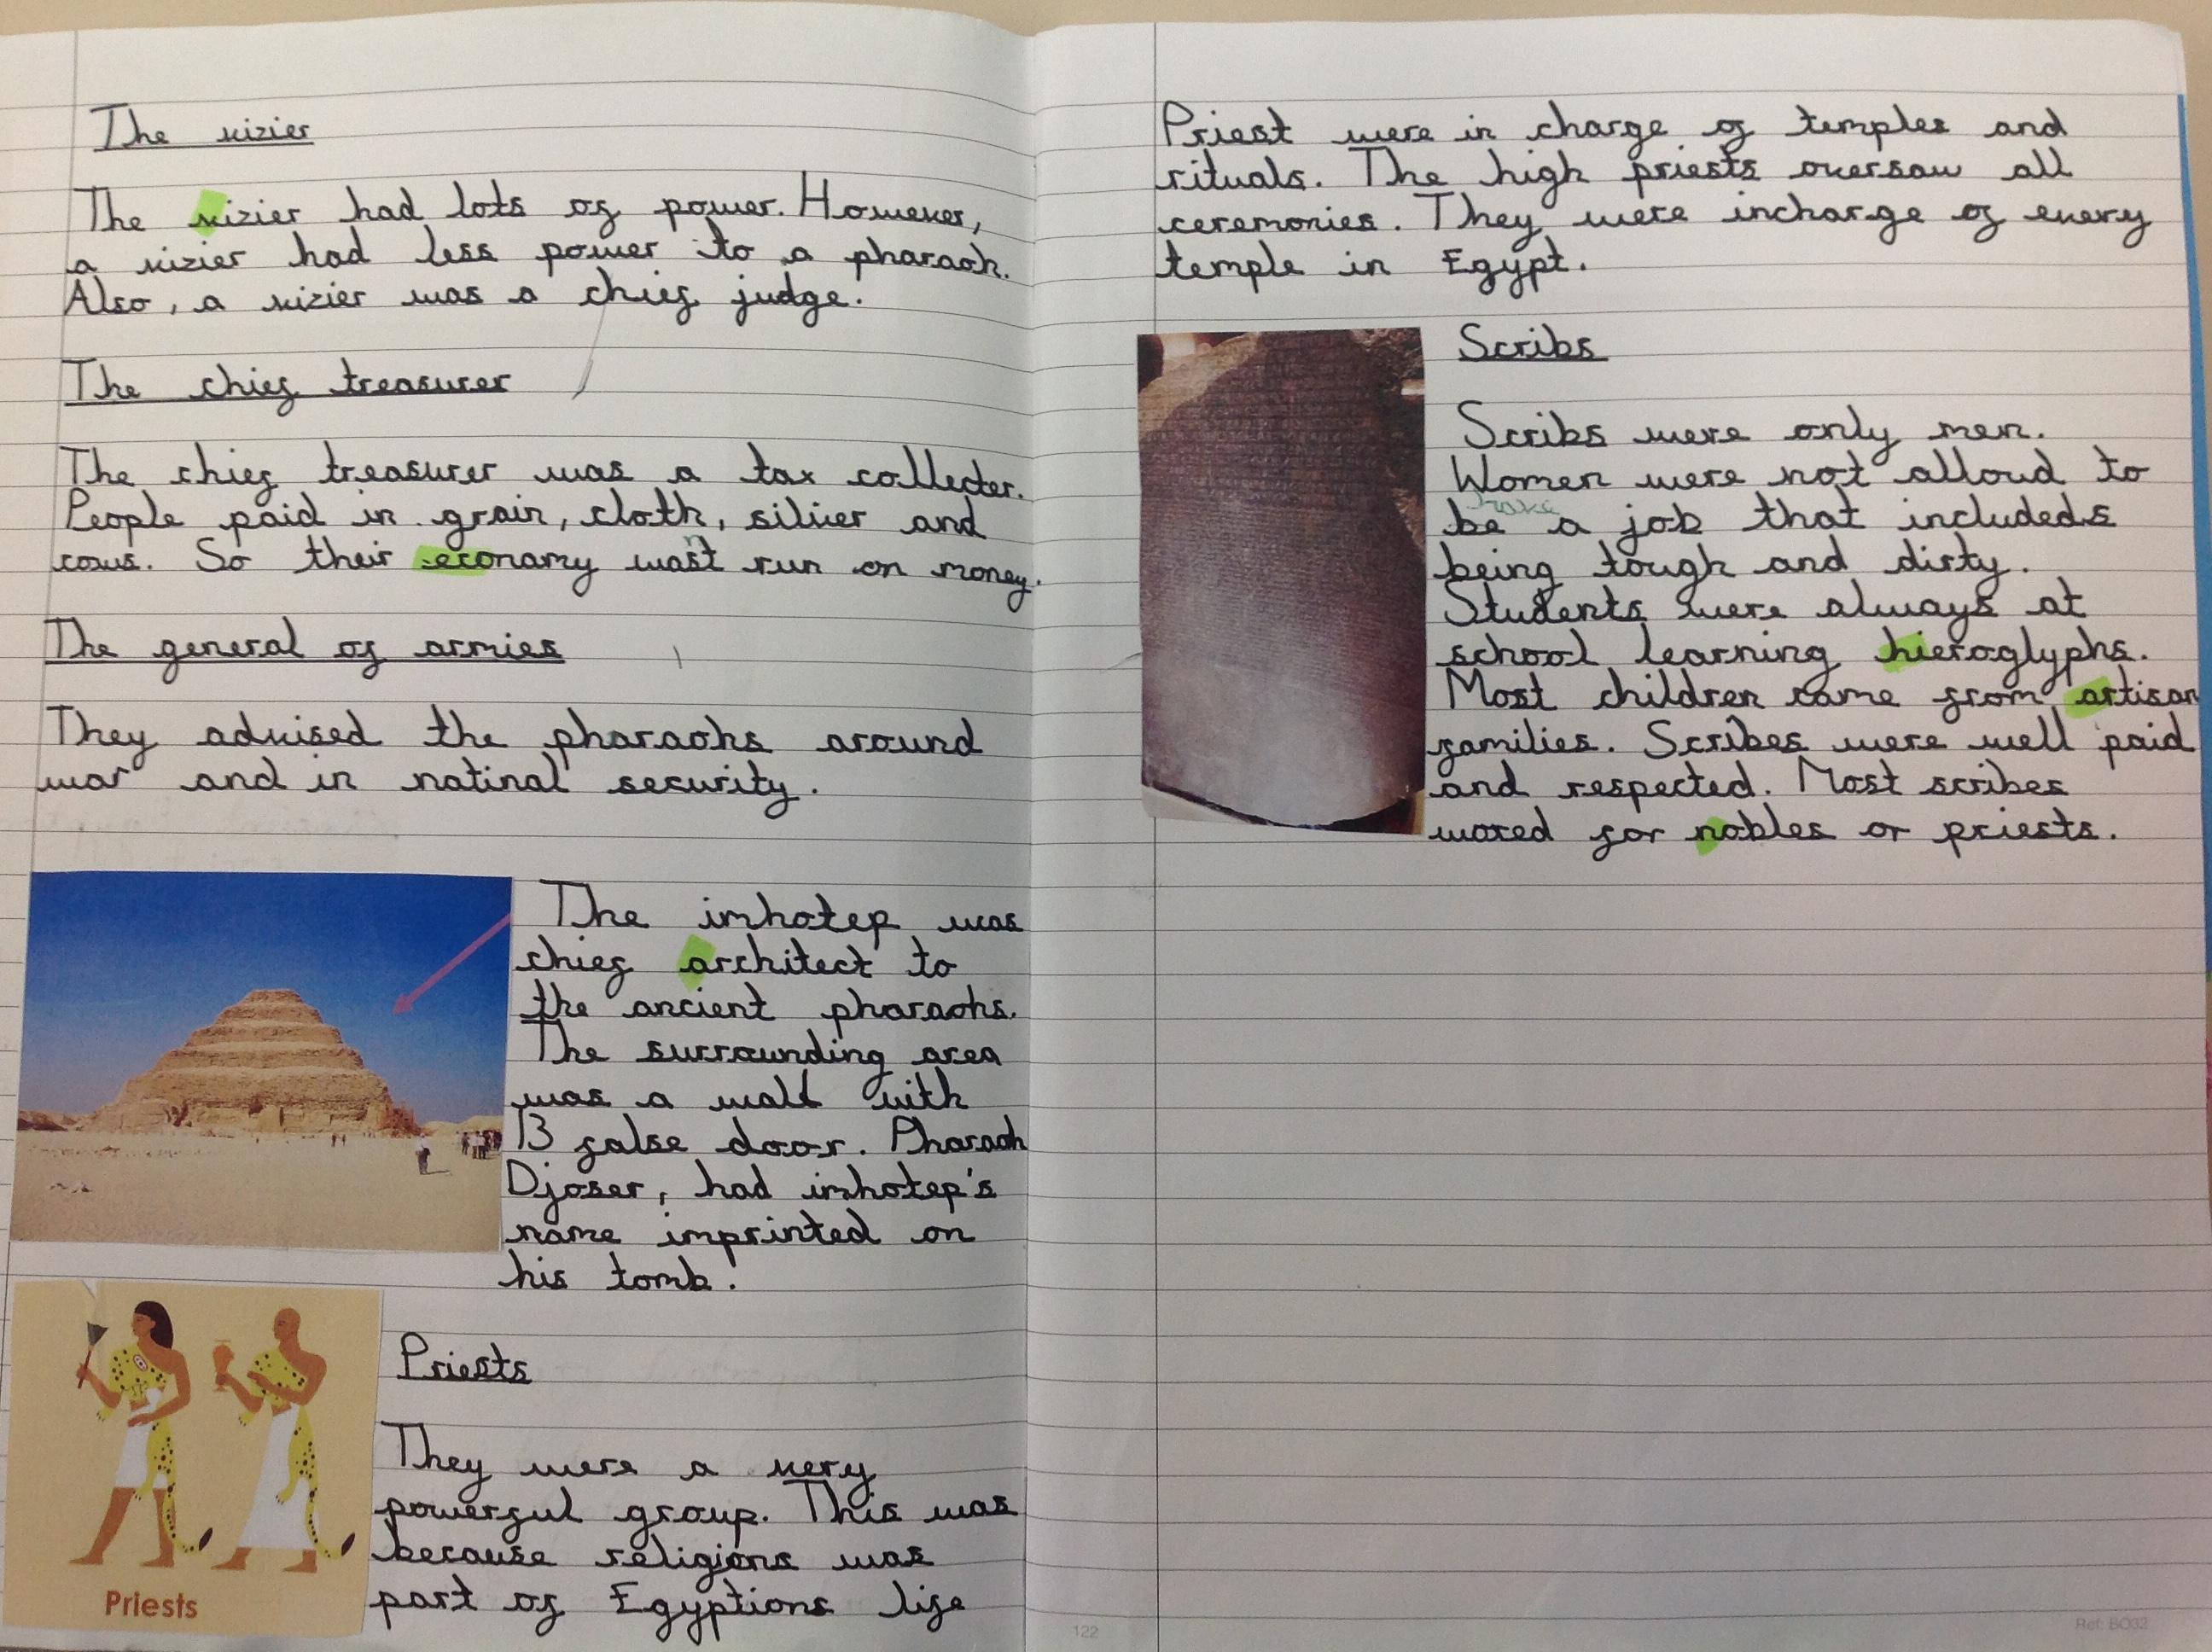 The vizier
The vizier had lots of power. However,
a vizier had less power to a pharaoh.
Also, a vizier was a chief judge.
The chief treasurer
The chief treasurer was a tax collecter.
People paid in grain, cloth, silver and
cows. So their economy wasnt run on money.
The general of armies
They advised the pharaohs around
war and in natinal security.
The imhotep was
chief architect to
the ancient pharaohs.
The surrounding area
was a wall with
13 false door. Pharaoh
Djoser, had imhotep's
name imprinted on
his tomb.
Priests
They were a very
powerful group. This was
because religions was
part of Egyptions life
Priests
122
Priest were in charge of temples and
rituals. The high priests oversaw all
ceremonies. They were incharge of every
temple in Egypt.
Scribs
Scribs were only men.
Women were not alloud to
have
be a job that includeds
being tough and dirty.
Students were always at
school learning hieroglyphs.
Most children came from artisan
families. Scribes were well paid
and respected. Most scribes
wored for nobles or priests.
Ref: BO32